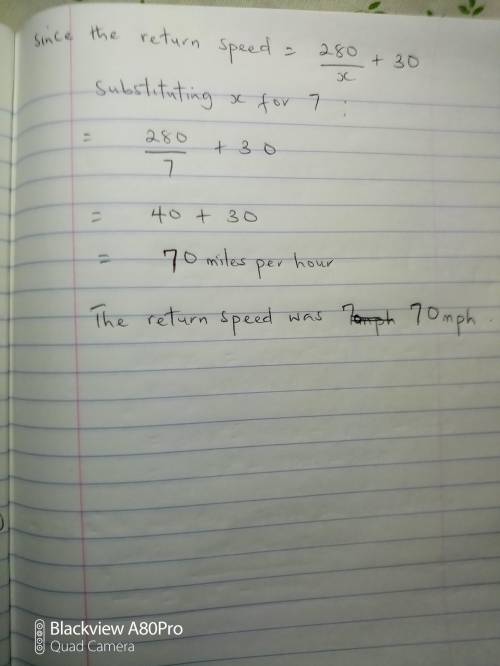 since the return speed = 280/x + 30
Substituting x for 7 :
= 280/7 + 30
= 40 + 30
= 70 miles per hour
The return speed was 70mph .
Blackview A80Pro
Quad Camera